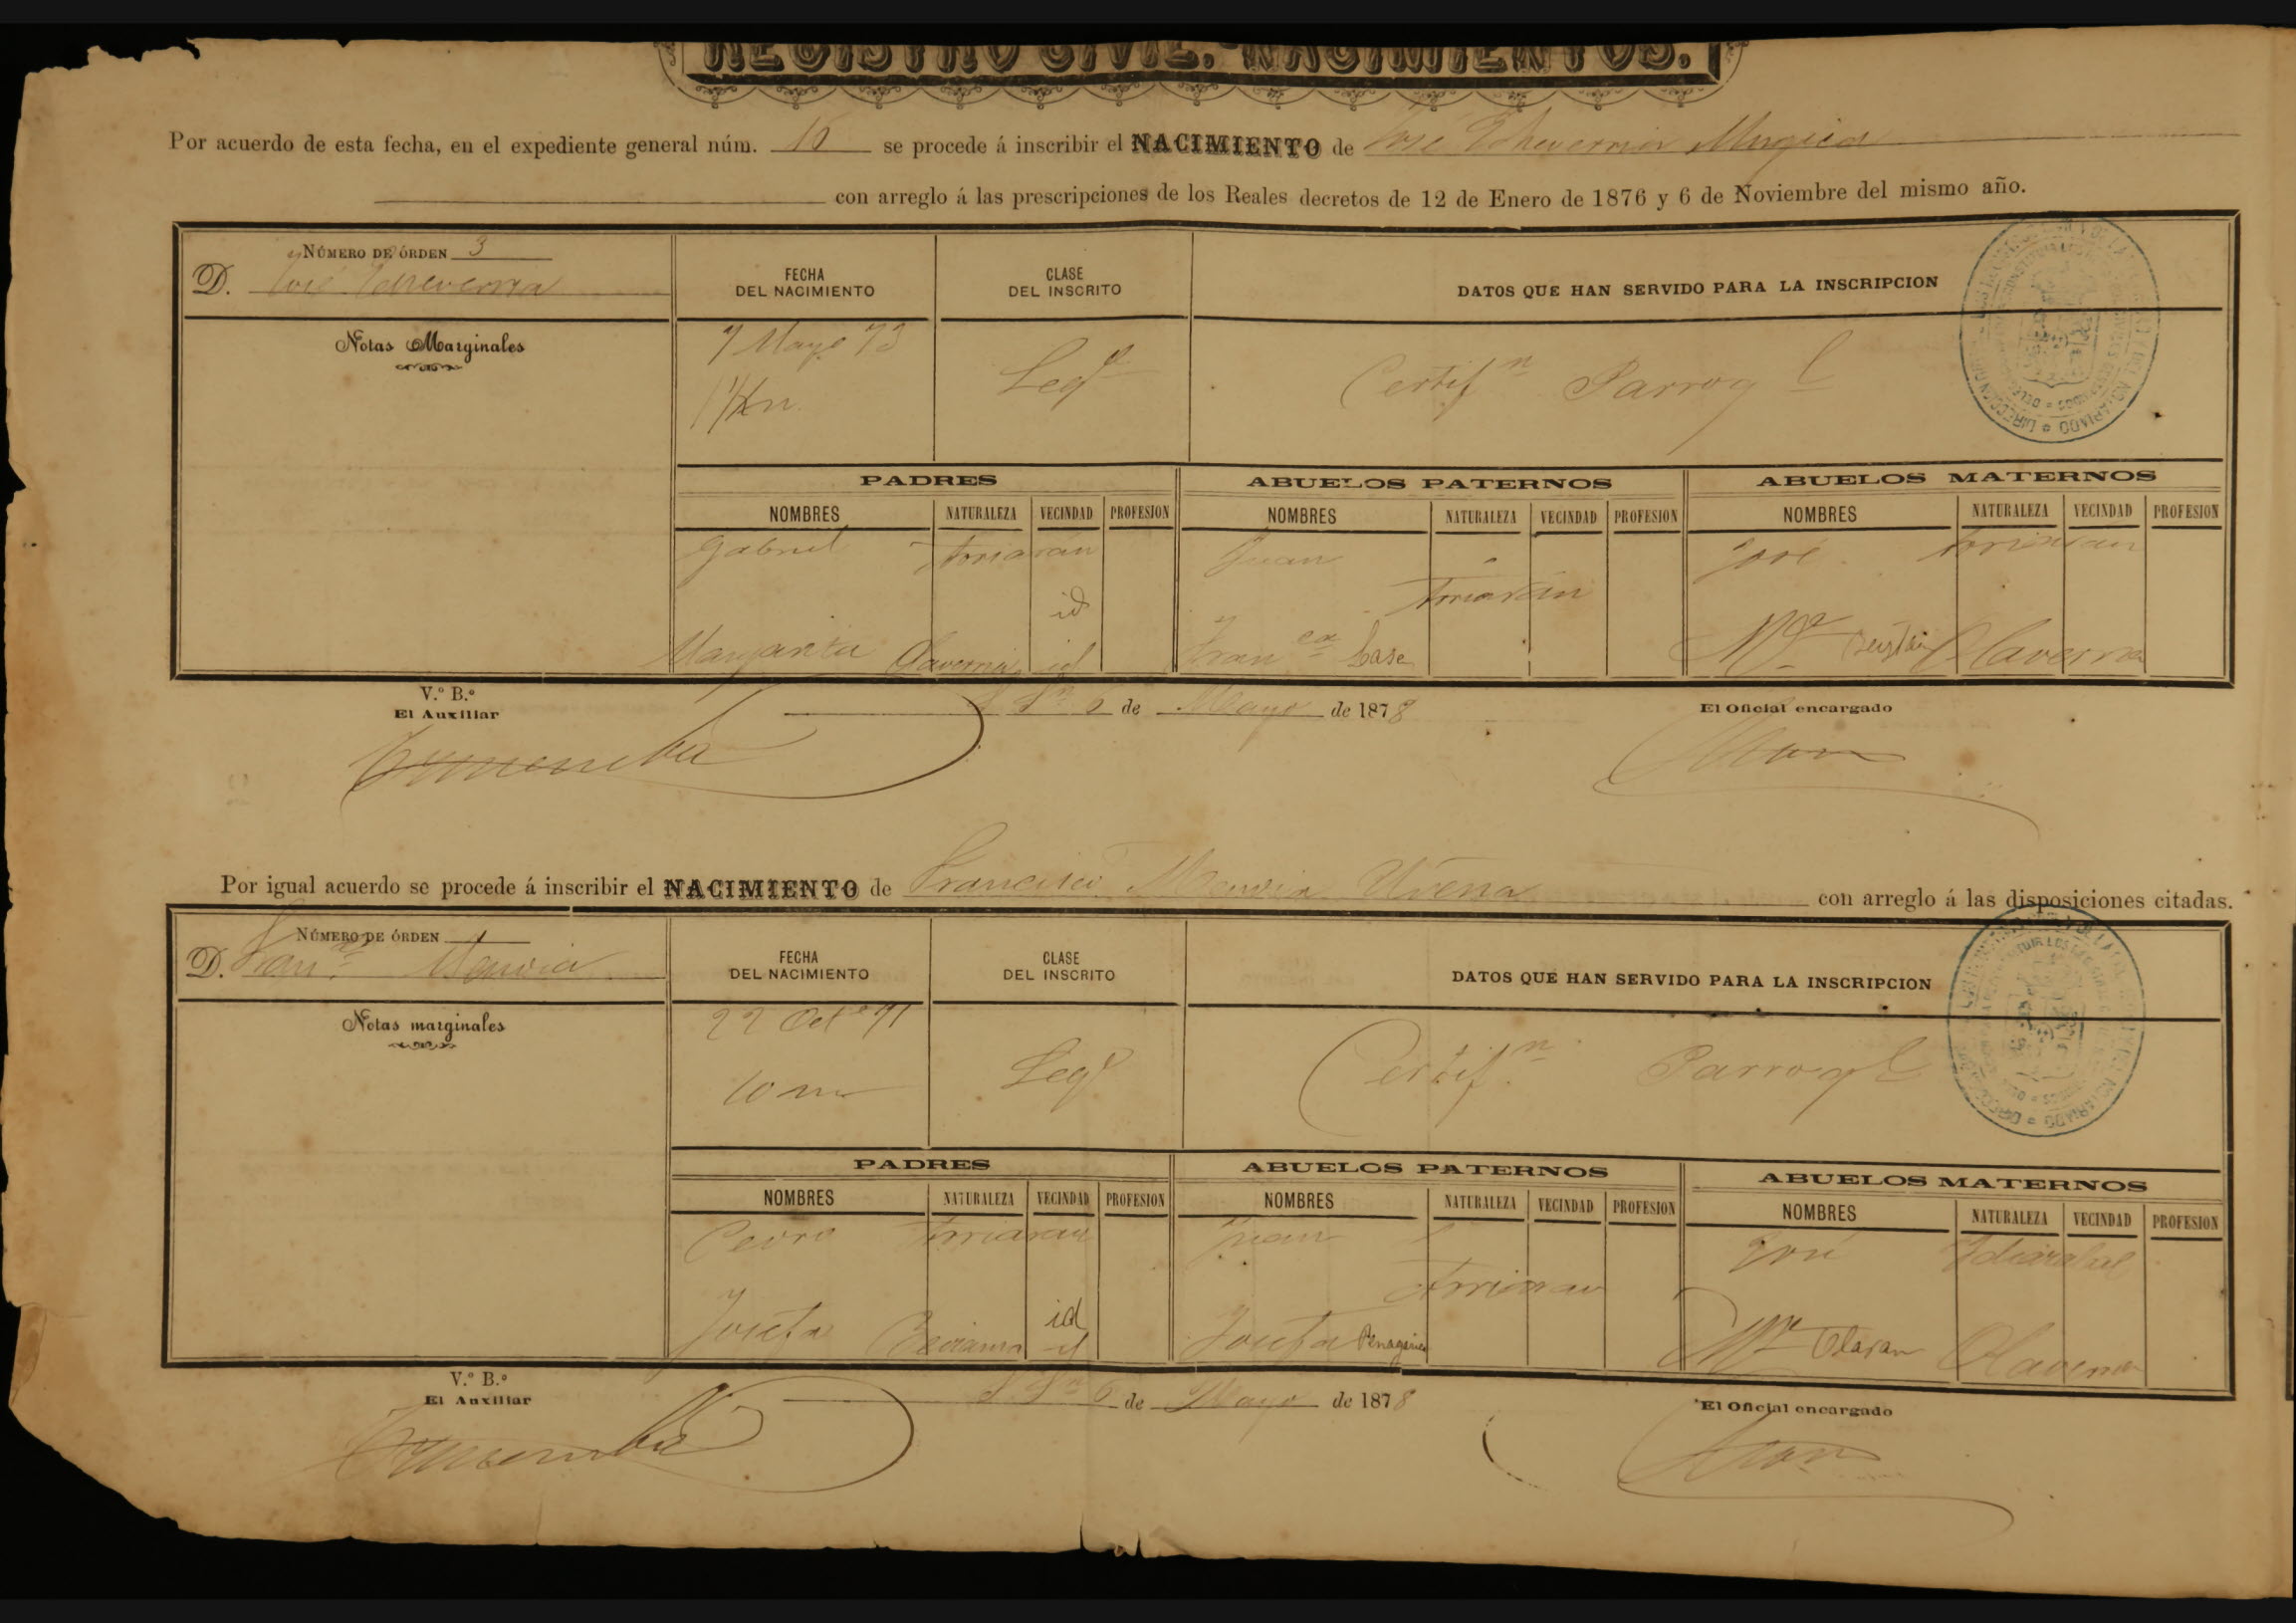 REGISTRO CIVIL. NACIMIENTOS.
Por acuerdo de esta fecha, en el expediente general núm. 16 se procede á inscribir el NACIMIENTO de José Echeverria Mugica
con arreglo á las prescripciones de los Reales decretos de 12 de Enero de 1876 y 6 de Noviembre del mismo año.
NÚMERO DE ÓRDEN 3
D. José Echeverria
Notas Marginales
FECHA DEL NACIMIENTO
CLASE DEL INSCRITO
DATOS QUE HAN SERVIDO PARA LA INSCRIPCION
7 Mayo 73
Legl
Certifn Parrogl
PADRES
ABUELOS PATERNOS
ABUELOS MATERNOS
NOMBRES NATURALEZA VECINDAD PROFESION NOMBRES NATURALEZA VECINDAD PROFESION NOMBRES NATURALEZA VECINDAD PROFESION
Gabriel Arriarán Juan José Arriaran
id Arriarán
Margarita Olaverria id Franca Sase Ma Olaverria
V.º B.º
El Auxiliar
6 de Mayo de 1878
El Oficial encargado
Por igual acuerdo se procede á inscribir el NACIMIENTO de Francisco con arreglo á las disposiciones citadas.
NÚMERO DE ÓRDEN
D. Franco
Notas marginales
FECHA DEL NACIMIENTO
CLASE DEL INSCRITO
DATOS QUE HAN SERVIDO PARA LA INSCRIPCION
22 Oct e 71
10 m
Legl
Certif.n Parrogl
PADRES
ABUELOS PATERNOS
ABUELOS MATERNOS
NOMBRES NATURALEZA VECINDAD PROFESION NOMBRES NATURALEZA VECINDAD PROFESION NOMBRES NATURALEZA VECINDAD PROFESION
Pedro Arriaran Juan José Idiazabal
Arriaran
Josefa Beasama id Josefa Ma Olaran Olaverria
V.º B.º
El Auxiliar
6 de Mayo de 1878
El Oficial encargado